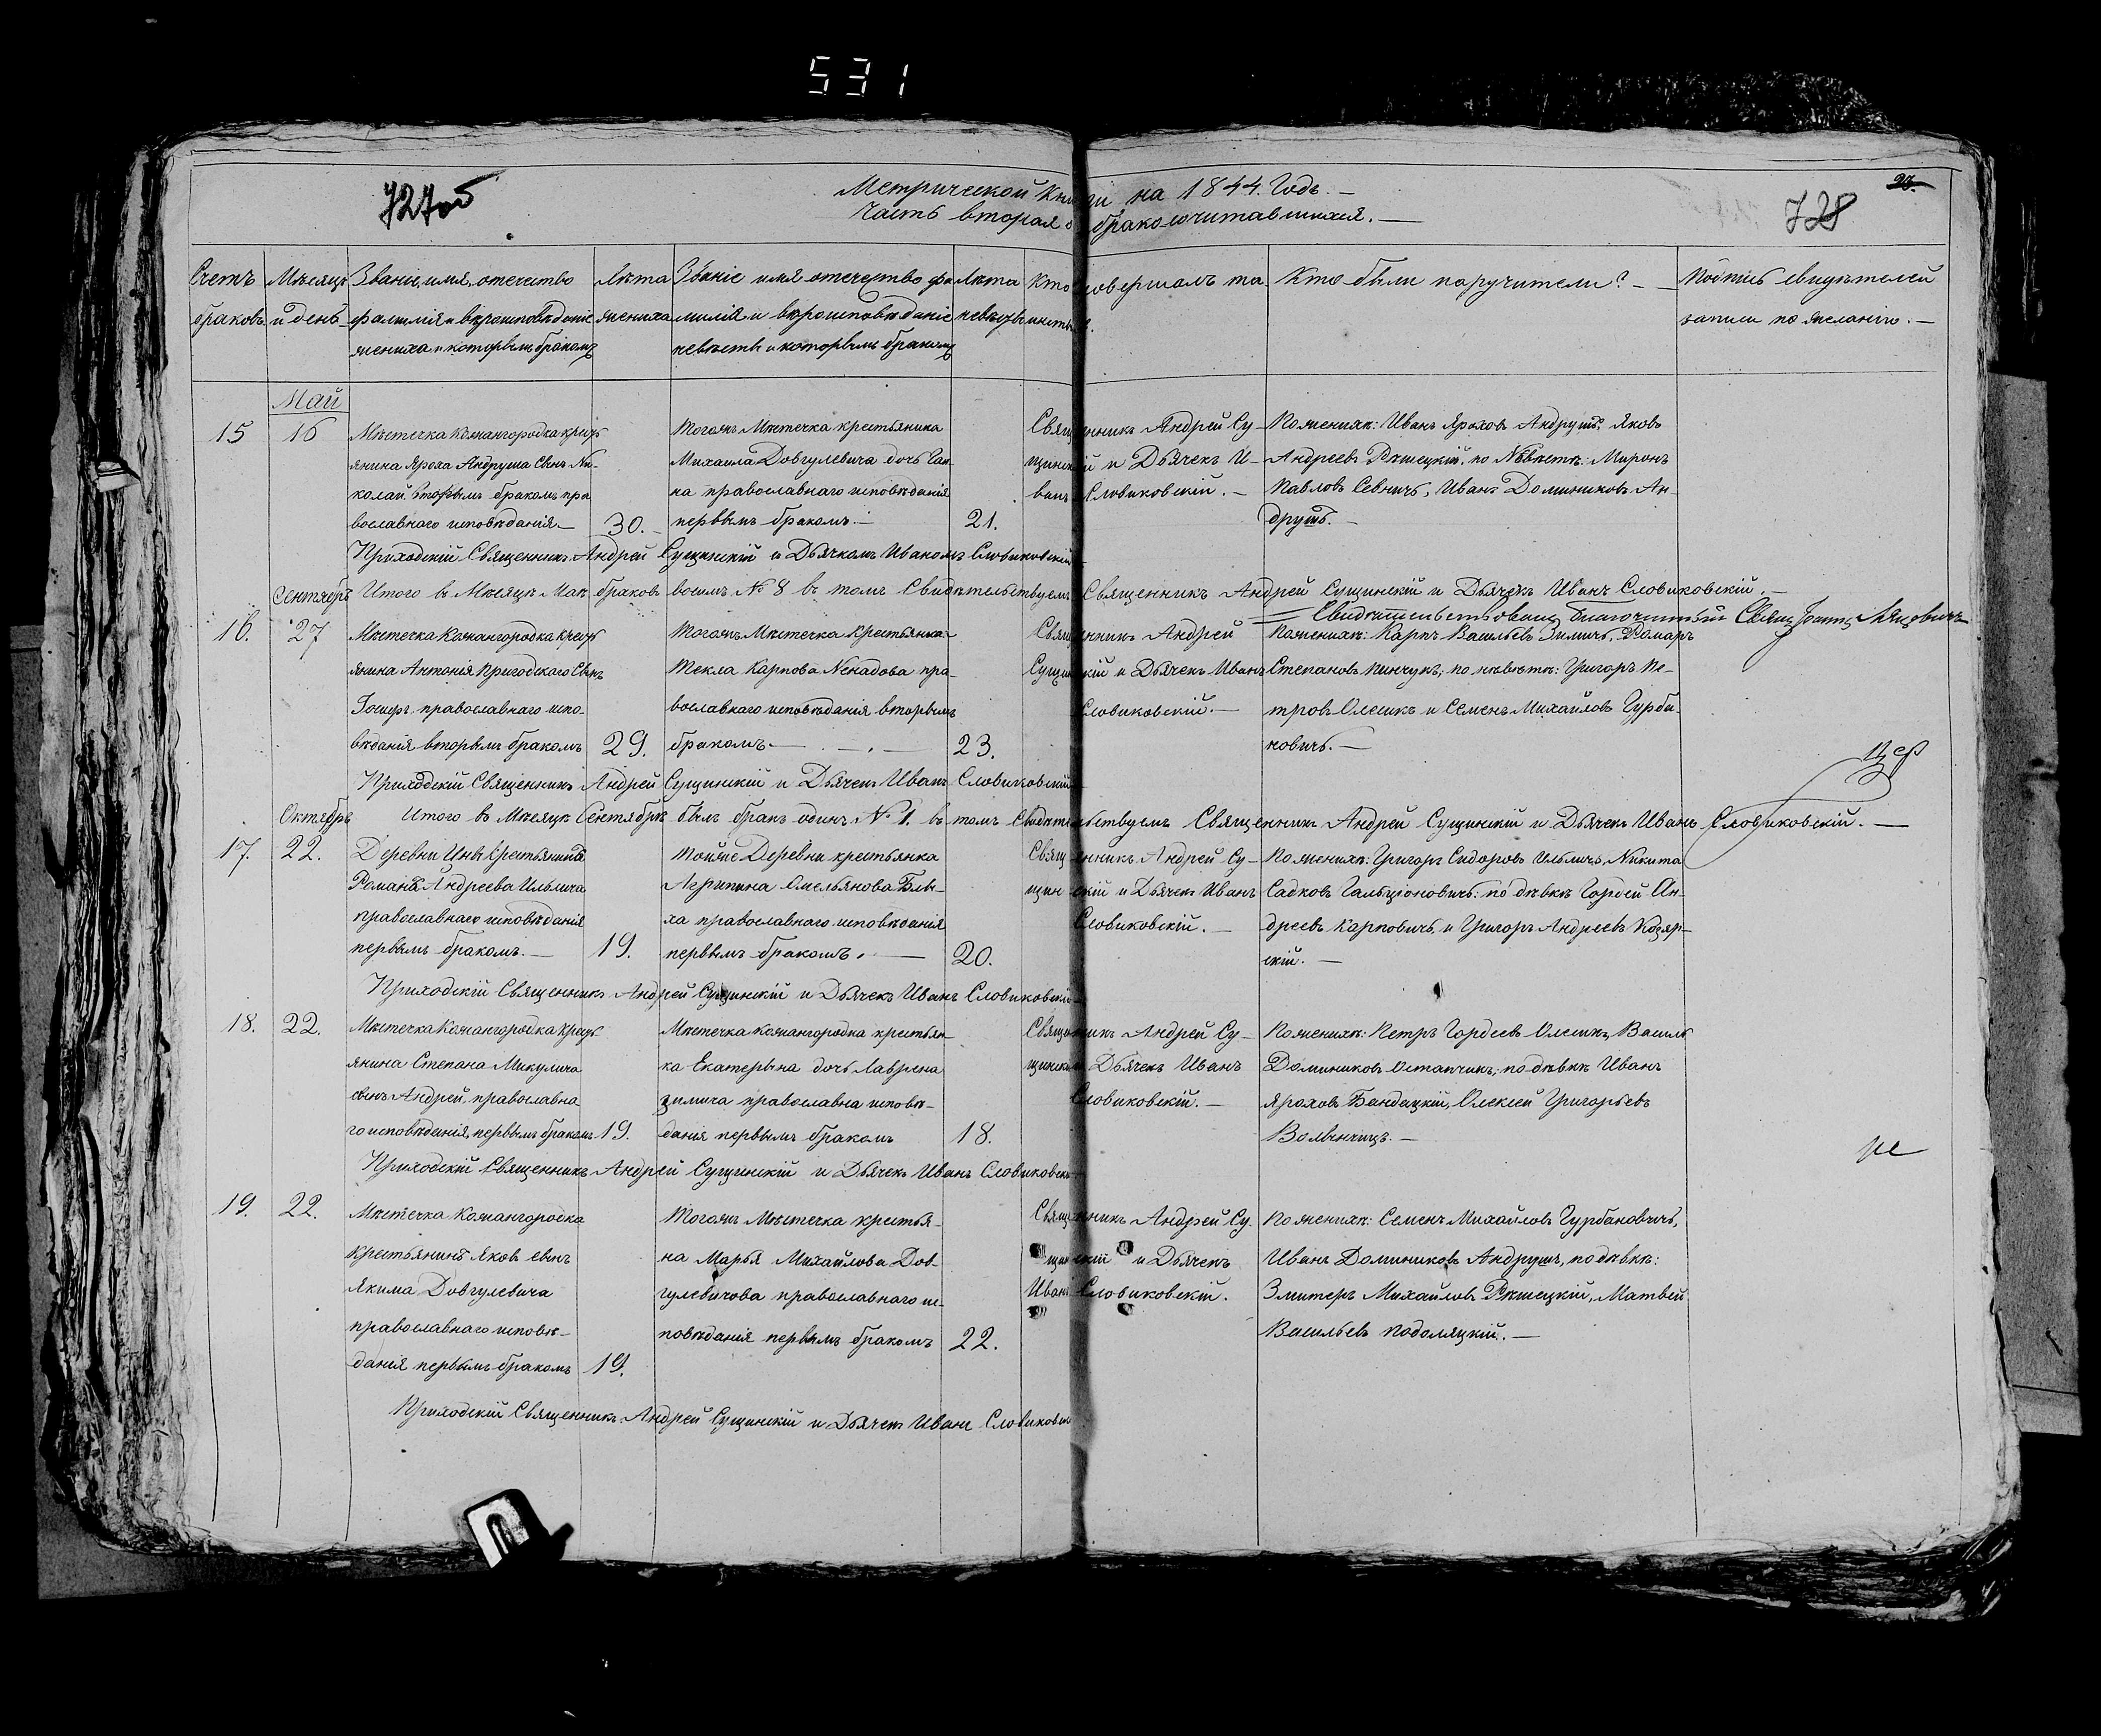 531
727об
Метрической книги на 1844. Годъ. —
Часть вторая о бракосочитавшихся. —
28.
728
Счетъ браковъ
Мѣсяцъ и день
Званіе, имя, отечество
фамилія и вѣроисповѣданіе
жениха и которымъ бракомъ
Лѣта
жениха
Званіе имя отечество фа
милія и вѣроисповѣданіе
невѣсты и которымъ бракомъ
Лѣта
невѣсты
Кто совершалъ та
инства.
Кто были поручители? —
Подпись свидѣтелей
записи по желанію. —
Май
15
16
Мѣстечка Кожангородка крест
янина Яроха Андруша Сынъ Ни-
колай вторымъ бракомъ пра
вославнаго исповѣданія —
30.
Тогожъ Мѣстечка крестьянина
Михаила Довгулевича дочь Ган-
на православнаго исповѣданія
первымъ бракомъ. —
21.
Священникъ Андрей Су-
щинскій и Дьячекъ И-
ванъ Словиковскій. —
По женихѣ: Иванъ Ярохов Андрушъ, Яковъ
Андреевъ Рѣшецкій, по Невѣстѣ: Миронъ
Павловъ Севничь, Иванъ Доминиковъ Ан-
друшъ. —
Приходскій Священникъ Андрей Сущинскій и Дьячкомъ Иваномъ Словиковскій
Итого въ Мѣсяцѣ Маѣ браковъ восимь № 8 въ томъ Свидѣтельствуемъ Священникъ Андрей Сущинскій и Дьячекъ Иванъ Словиковскій. —
Свидѣтельствовалъ Благочинный Свящ
Сентябрь
16.
27
Мѣстечка Кожангородка крест
янина Антонія Пригодского Сынъ
православнаго испо-
вѣданія вторымъ бракомъ
29.
Тогожъ Мѣстечка Крестьянка
Текла Карпова Ненадова пра-
вославнаго исповѣданія вторымъ
бракомъ —
23.
Священникъ Андрей
Сущинскій и Дьячекъ Иванъ
Словиковскій. —
По женихѣ: Карпъ Васильевъ Зимичь,
Степановъ Пинчукъ; по невѣстѣ: Григоръ Пе-
тровъ Олешкъ и Семенъ Михайловъ Гурба-
новичь. —
Приходскій Священникъ Андрей Сущинскій и Дьячекъ Иванъ Словиковскій
Октябрь
Итого въ Мѣсяцѣ Сентябрѣ былъ бракъ одинъ № 1. въ томъ Свидѣтельствуемъ Священникъ Андрей Сущинскій и Дьячекъ Иванъ Словиковскій. —
17.
22.
Деревни крестьянинъ
Романъ Андреева Ильича
православнаго исповѣданія
первымъ бракомъ. —
19.
Тойже Деревни крестьянка
Агрипина Омельянова Блы-
ха православнаго исповѣданія
первымъ бракомъ. —
20.
Священникъ Андрей Су-
щинскій и Дьячекъ Иванъ
Словиковскій. —
По женихѣ: Григоръ Сидоровъ Ильичъ, Никита
Садковъ по дѣвкѣ Гордей Ан-
дреевъ Карповичь и Григоръ Андреевъ Козяр-
скій. —
Приходскій Священникъ Андрей Сущинскій и Дьячекъ Иванъ Словиковскій
18.
22.
Мѣстечка Кожангородка крест
янина Степана Микулича
сынъ Андрей, православна
го исповѣданія, первымъ бракомъ
19.
Мѣстечка Кожангородка крестьян-
ка Екатерына дочь Лаврена
Зимича православна исповѣ-
данія первымъ бракомъ
18.
Священникъ Андрей Су-
щинскій и Дьячекъ Иванъ
Словиковскій. —
По женихѣ: Петръ Гордеевъ Олешкъ, Василь
Доминиковъ Остапчикъ; по дѣвкѣ Иванъ
Ярохов Бандацкій, Олексей Григорьевъ
Волынчицъ. —
Приходскій Священникъ Андрей Сущинскій и Дьячекъ Иванъ Словиковскій
19.
22.
Мѣстечка Кожангородка
Крестьянинъ Яков сынъ
Якима Довгулевича
православнаго исповѣ-
данія первымъ бракомъ
19.
Тогожъ Мѣстечка крестья-
на Марья Михайлова Дов-
гулевичова православнаго ис-
повѣданія первымъ бракомъ
22.
Священникъ Андрей Су
щинскій и Дьячекъ
Иванъ Словиковскій.
По женихѣ: Семенъ Михайловъ Гурбановичь,
Иванъ Доминиковъ Андрушъ, по дѣвкѣ:
Змитеръ Михайловъ Рѣшецкій, Матвѣй
Васильевъ Подоляцкій. —
Приходскій Священникъ Андрей Сущинскій и Дьячекъ Иванъ Словиковскій